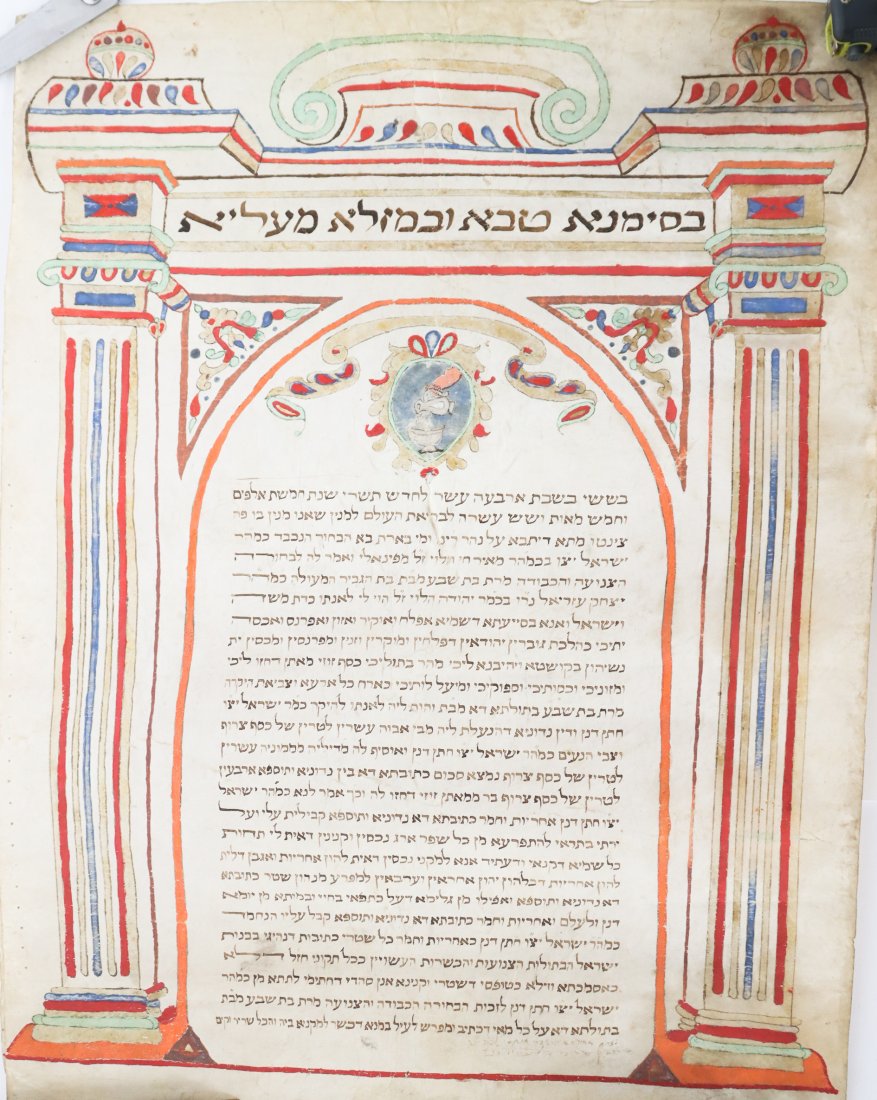 בסימנא טבא ובמזלא מעליא
בששי בשבת ארבעה עשר לחדש תשרי שנת חמשת אלפים
וחמש מאות ושש עשרה לבריאת העולם למנין שאנו מנין בו פה
מתא דיתבא על נהר רינו ומי בארת בא הבחור הנכבד כמהר
ישראל יצו בכמהר מאיר חי הלוי זל מפינאלי ואמר לה לבחורה
הצנועה והכבודה מרת בת שבע מבת בת הגביר המעולה כמהר
יצחק עזריאל נרו בכמר יהודה הלוי זל הוי לי לאנתו כדת משה
וישראל ואנא בסייעתא דשמיא אפלח ואוקיר ואזון ואפרנס ואכסה
יתיכי כהלכת גוברין יהודאין דפלחין ומוקרין וזנין ומפרנסין ומכסין ית
נשיהון בקושטא ויהיבנא ליכי מהר בתוליכי כסף זוזי מאתן דחזו ליכי
ומזוניכי וכסותיכי וספוקיכי ומיעל לותיכי כארח כל ארעא וצביאת
מרת בת שבע בתולתא דא מבת והות ליה לאנתו להיקר כמר ישראל יצו
חתן דנן ודין נדוניא דהנעלת ליה מבי אביה עשרין לטרין של כסף צרוף
וצבי הנעים כמהר ישראל יצו חתן דנן ואוסיף לה מדיליה מממוניה עשרין
לטרין של כסף צרוף נמצא סכום כתובתא דא בין נדוניא ותוספא ארבעין
לטרין של כסף צרוף בר ממאתן זוזי דחזו לה וכך אמר לנא כמהר ישראל
יצו חתן דנן אחריות וחמר כתובתא דא נדוניא ותוספא קבילית עלי ועל
ירתי בתראי להתפרעא מן כל שפר ארג נכסין וקנינין דאית לי תחות
כל שמיא דקנאי ודעתיד אנא למקני נכסין דאית להון אחריות ואגבן דלית
להון אחריות דכלהון יהון אחראין וערבאין למפרע מנהון שטר כתובתא
דא נדוניא ותוספא ואפילו מן גלימא דעל כתפאי בחיי ובמיתא מן יומא
דנן ולעלם ואחריות וחמר כתובתא דא נדוניא ותוספא קבל עליו הנחמד
כמהר ישראל יצו חתן דנן כאחריות וחמר כל שטרי כתובות דנהיגי בבנות
ישראל הבתולות הצנועות והכשרות העשויין ככל תקוני חזל דלא
כאסמכתא ודלא כטופסי דשטרי וקנינא אנן סהדי דחתימי לתתא מן כמהר
ישראל יצו חתן דנן לזכות הבחורה הכבודה והצנועה מרת בת שבע מבת
בתולתא דא על כל מאי דכתיב ומפרש לעיל במנא דכשר למקניא ביה והכל שריר וקים